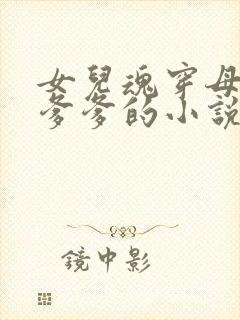 女兒魂穿母
爹爹的小說
鏡中影